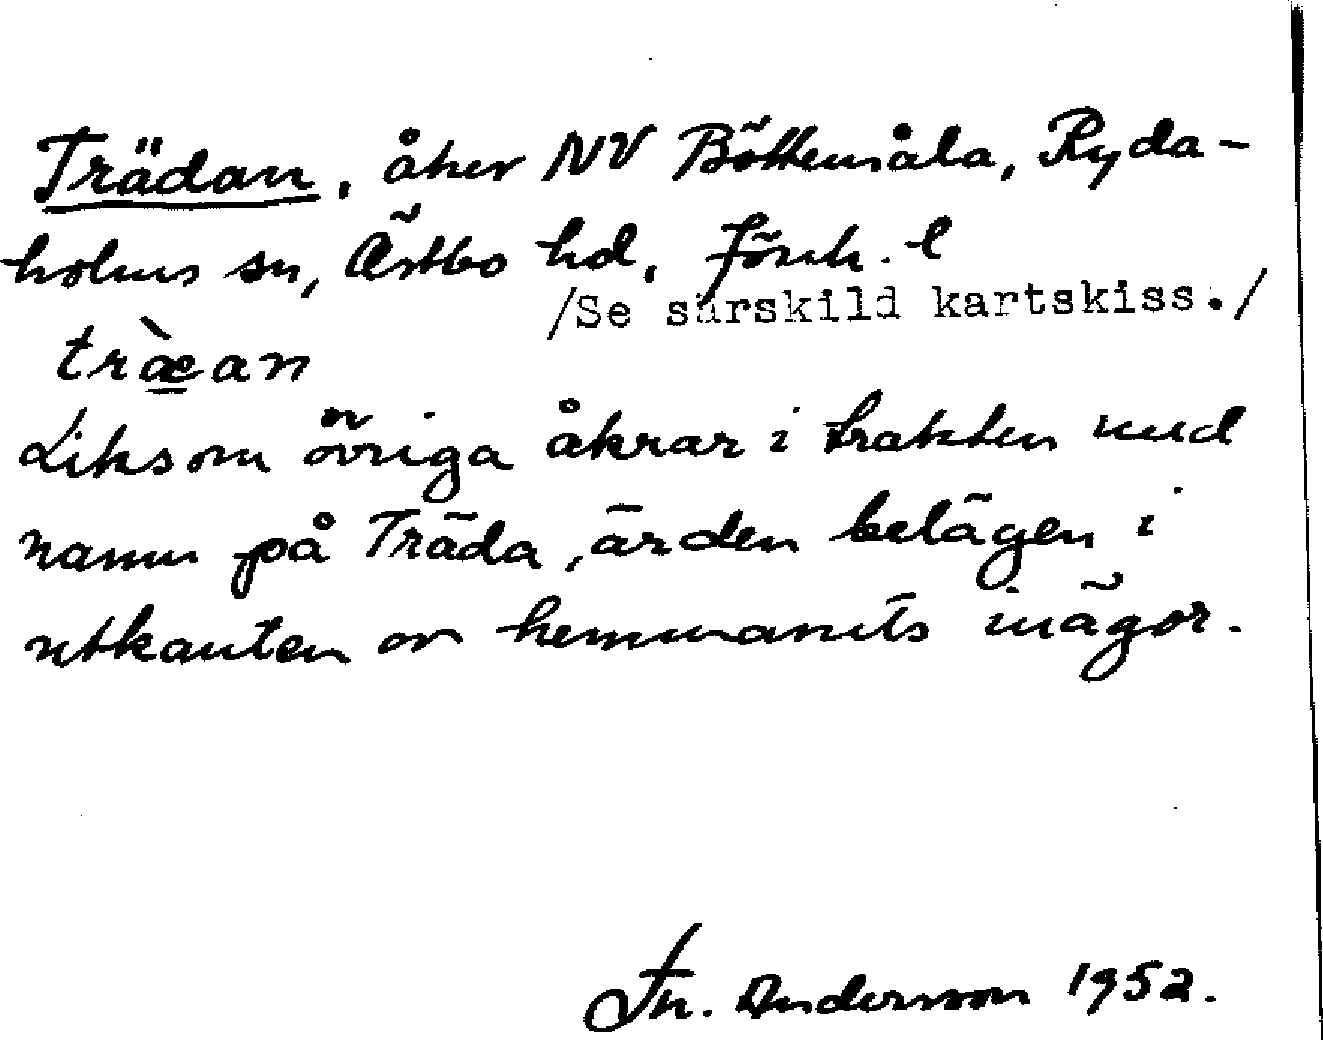 Trädan, åker NV Böttemåla, Ryda-
holms sn, Östbo hd, Jönk. l
/Se särskild kartskiss./
træ̀an
Liksom övriga åkrar i trakten med
namn på Träda, är den belägen i
utkanten av hemmanets inägor.
Fr. Andersson 1952.